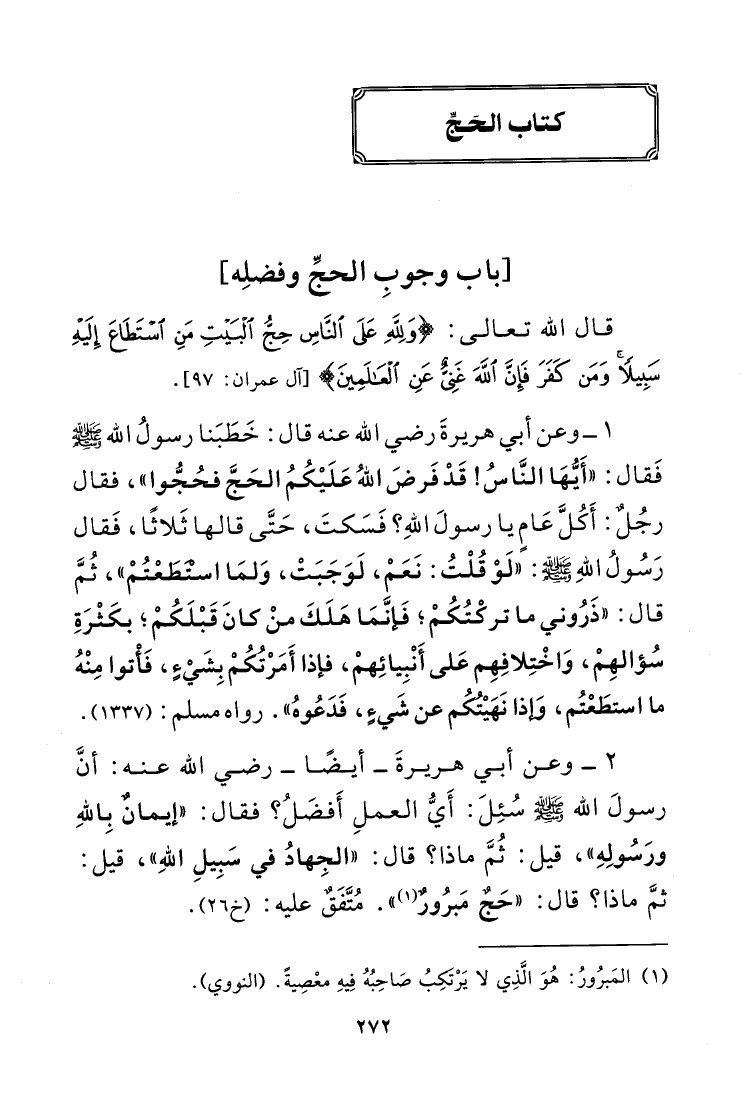 كتاب الحَجِّ
[باب وجوبِ الحجِّ وفضلِه]
قال الله تعالى: ﴿وَلِلَّهِ عَلَى ٱلنَّاسِ حِجُّ ٱلْبَيْتِ مَنِ ٱسْتَطَاعَ إِلَيْهِ
سَبِيلًاۚ وَمَن كَفَرَ فَإِنَّ ٱللَّهَ غَنِىٌّ عَنِ ٱلْعَـٰلَمِينَ﴾ [آل عمران: ٩٧].
١ ـ وعن أبي هريرةَ رضي الله عنه قال: خَطَبَنا رسولُ الله ﷺ
فَقال: «أَيُّهَا النَّاسُ! قَدْ فَرضَ اللهُ عَلَيْكُمُ الحَجَّ فحُجُّوا»، فقال
رجُلٌ: أَكُلَّ عَامٍ يا رسولَ اللهِ؟ فَسَكتَ، حَتَّى قالها ثَلاثًا، فَقال
رَسُولُ اللهِ ﷺ: «لَوْ قُلْتُ: نَعَمْ، لَوَجَبَتْ، وَلمَا اسْتَطَعْتُمْ»، ثُمَّ
قال: «ذَرُوني ما تركْتُكُمْ؛ فَإنَّمَا هَلَكَ منْ كانَ قَبْلَكُمْ؛ بكَثْرَةِ
سُؤالهِمْ، وَاخْتِلافِهِم عَلى أَنْبِيائِهمْ، فإذا أَمَرْتُكُمْ بِشَيْءٍ، فَأْتوا مِنْهُ
ما استطَعْتُم، وَإذا نَهَيْتُكُم عن شَيءٍ، فَدَعُوهُ». رواه مسلم: (١٣٣٧).
٢ ـ وعن أبي هريرةَ ـ أيضًا ـ رضي الله عنه: أنَّ
رسولَ الله ﷺ سُئِلَ: أَيُّ العملِ أَفضَلُ؟ فقال: «إيمانٌ بِاللهِ
ورَسُولِهِ»، قيل: ثُمَّ ماذا؟ قال: «الجِهادُ في سَبِيلِ اللهِ»، قيل:
ثمَّ ماذا؟ قال: «حَجٌّ مَبرُورٌ(١)». مُتَّفَقٌ عليه: (خ٢٦).
(١) المَبرُورُ: هُوَ الَّذِي لا يَرْتكِبُ صَاحِبُهُ فِيهِ معْصِيةً. (النووي).
٢٧٢